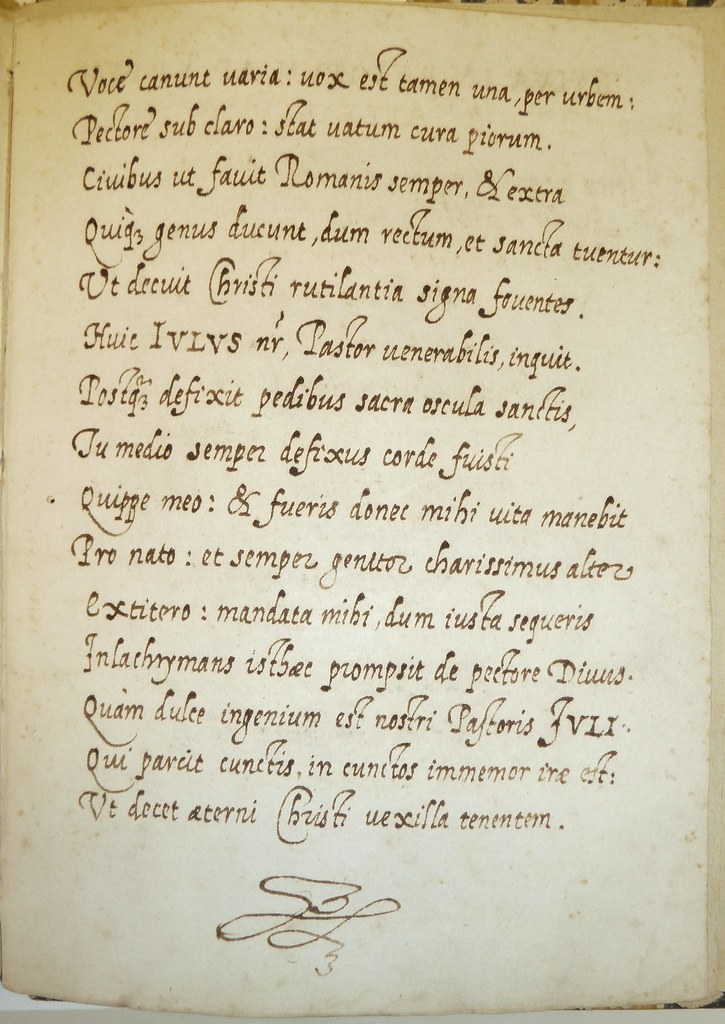 Voce canunt uaria: uox est tamen una, per urbem:
Pectore sub claro: stat uatum cura piorum.
Ciuibus ut fauit Romanis semper, & extra
Quiq̃ʒ genus ducunt, dum rectum, et sancta tuentur:
Vt decuit Christi rutilantia signa fouentes.
Huic IVLVS nr̃, Pastor uenerabilis, inquit.
Postq̃ʒ defixit pedibus sacra oscula sanctis,
Tu medio semper defixus corde fuisti
Quippe meo: & fueris donec mihi uita manebit
Pro nato: et semper genitor charissimus alter
Extitero: mandata mihi, dum iusta sequeris
Inlachrymans isthæc prompsit de pectore Diuus.
Quàm dulce ingenium est nostri Pastoris IVLI.
Qui parcit cunctis, in cunctos immemor iræ est:
Vt decet æterni Christi uexilla tenentem.